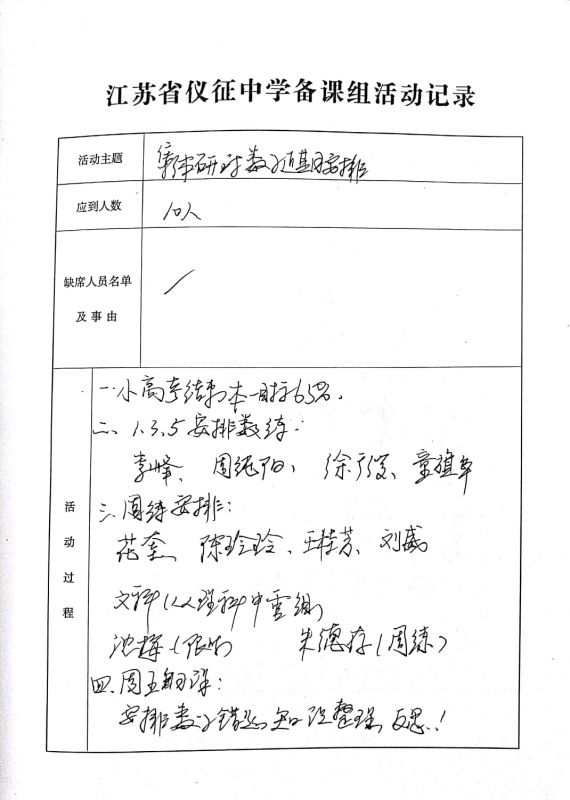 江苏省仪征中学备课组活动记录
活动主题
研讨数学周安排
应到人数
10人
缺席人员名单
及事由
活动过程
一、小高考结束 本一目标65%.
二、1.3.5安排数练:
李峰、周纯阳、徐广俊、童旗军
三、周练安排:
花奎、陈玲玲、王桂芳、刘威
文科(从理科中重组)
沈梅( 朱德存(周练)
四、周五
安排数学错题知识整理,反思!